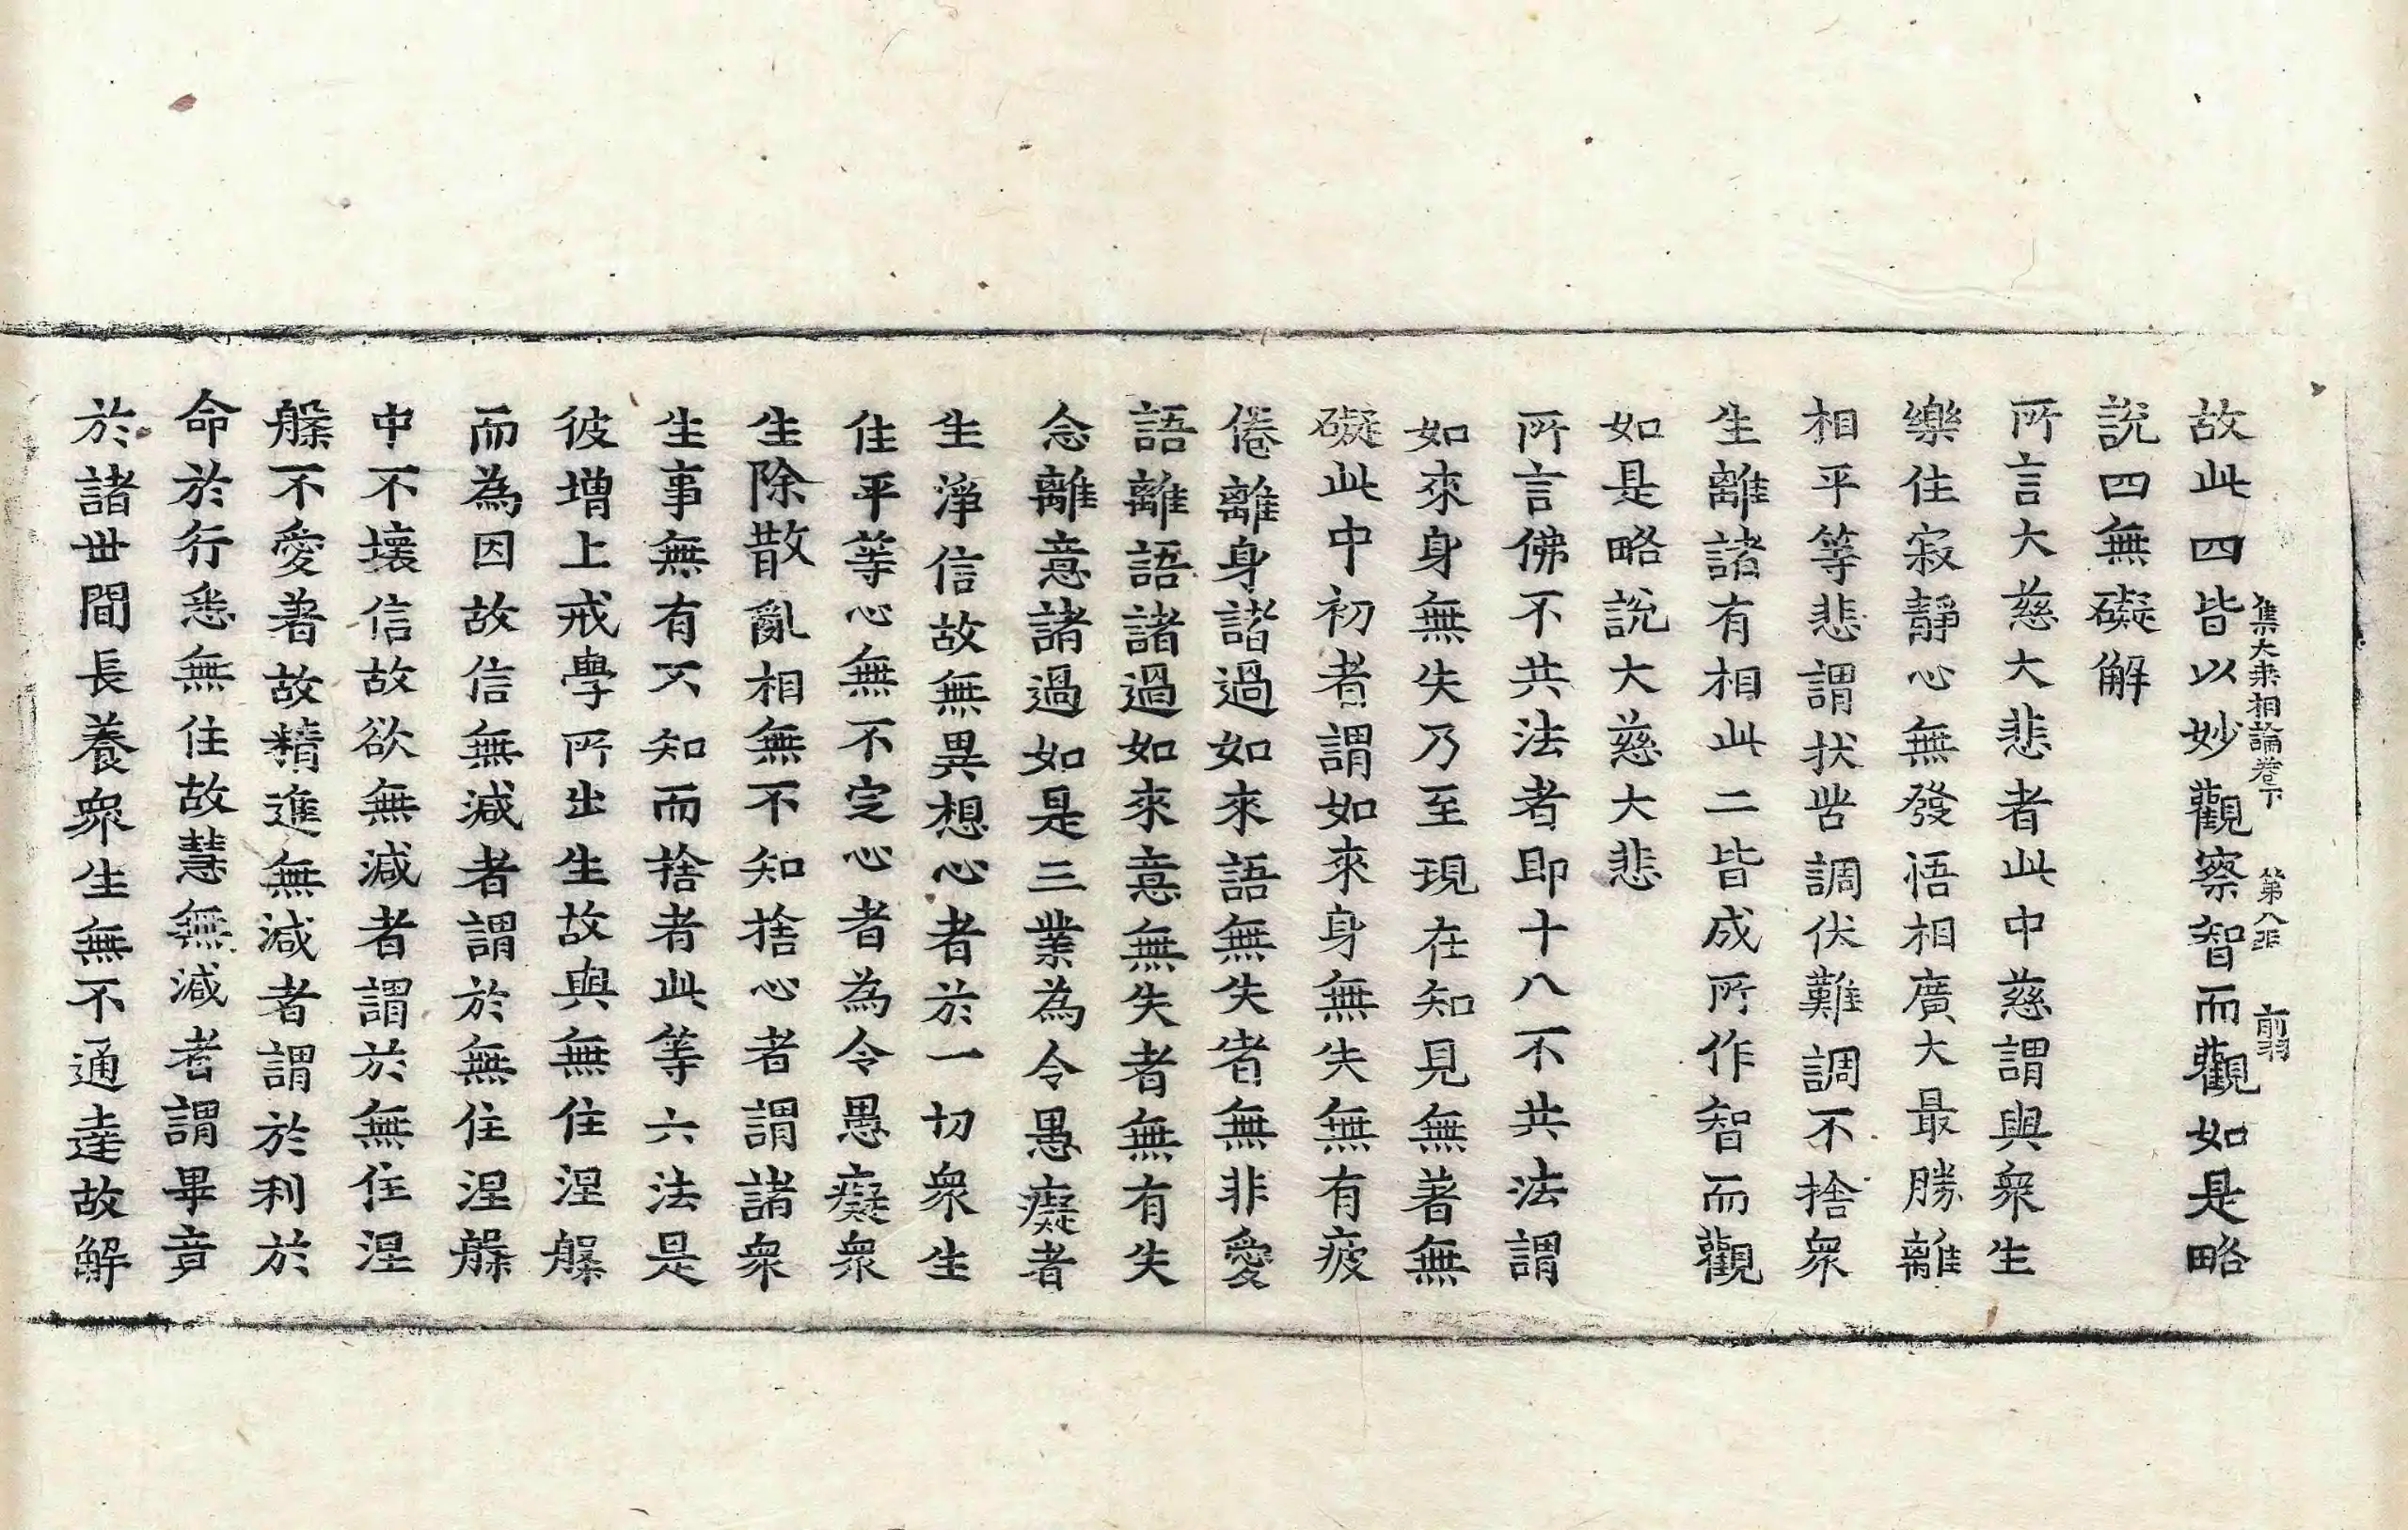 集大乗相論卷下 第八張 前羽
故此四皆以妙觀察智而觀如是略
説四無礙解
所言大慈大悲者此中慈謂與衆生
樂住寂靜心無發悟相廣大最勝離
相平等悲謂状呰調伏難調不捨衆
生離諸有相此二皆成所作智而觀
如是略説大慈大悲
所言佛不共法者即十八不共法謂
如來身無失乃至現在知見無著無
礙此中初者謂如來身無失無有疲
倦離身諸過如來語無失者無非愛
語離語諸過如來意無失者無有失
念離意諸過如是三業為令愚癡者
生淨信故無異想心者於一切衆生
住平等心無不定心者為令愚癡衆
生除散亂相無不知捨心者謂諸衆
生事無有不知而捨者此等六法是
彼增上戒學所出生故與無住涅槃
而為因故信無減者謂於無住涅槃
中不壞信故欲無減者謂於無住涅
槃不愛著故精進無減者謂於利於
命於行悉無住故慧無減者謂畢竟
於諸世間長養衆生無不通達故解